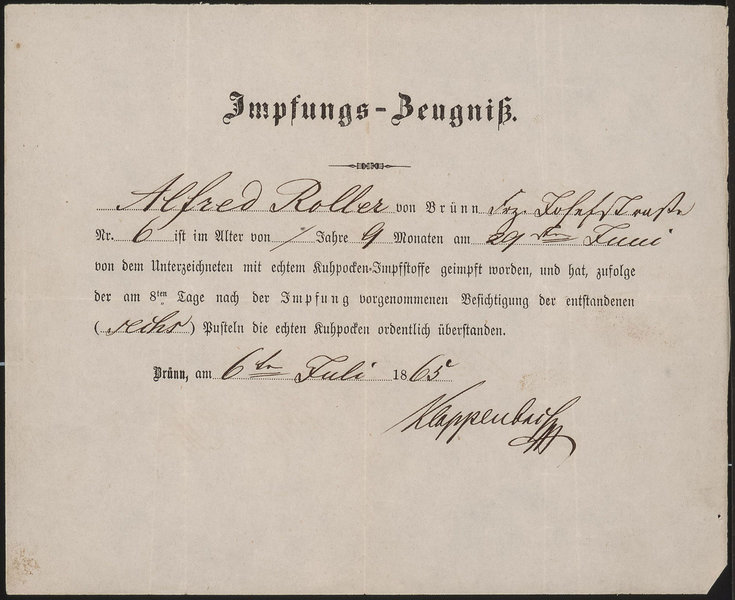 Impfungs-Zeugniß.
Alfred Roller von Brünn Frz. Josefstraße
Nr. 6 ist im Alter von / Jahre 9 Monaten am 29ten Juni
von dem Unterzeichneten mit echtem Kuhpocken-Impfstoffe geimpft worden, und hat, zufolge
der am 8ten Tage nach der Impfung vorgenommenen Besichtigung der entstandenen
(sechs) Pusteln die echten Kuhpocken ordentlich überstanden.
Brünn, am 6ten Juli 1865
Klappenbach